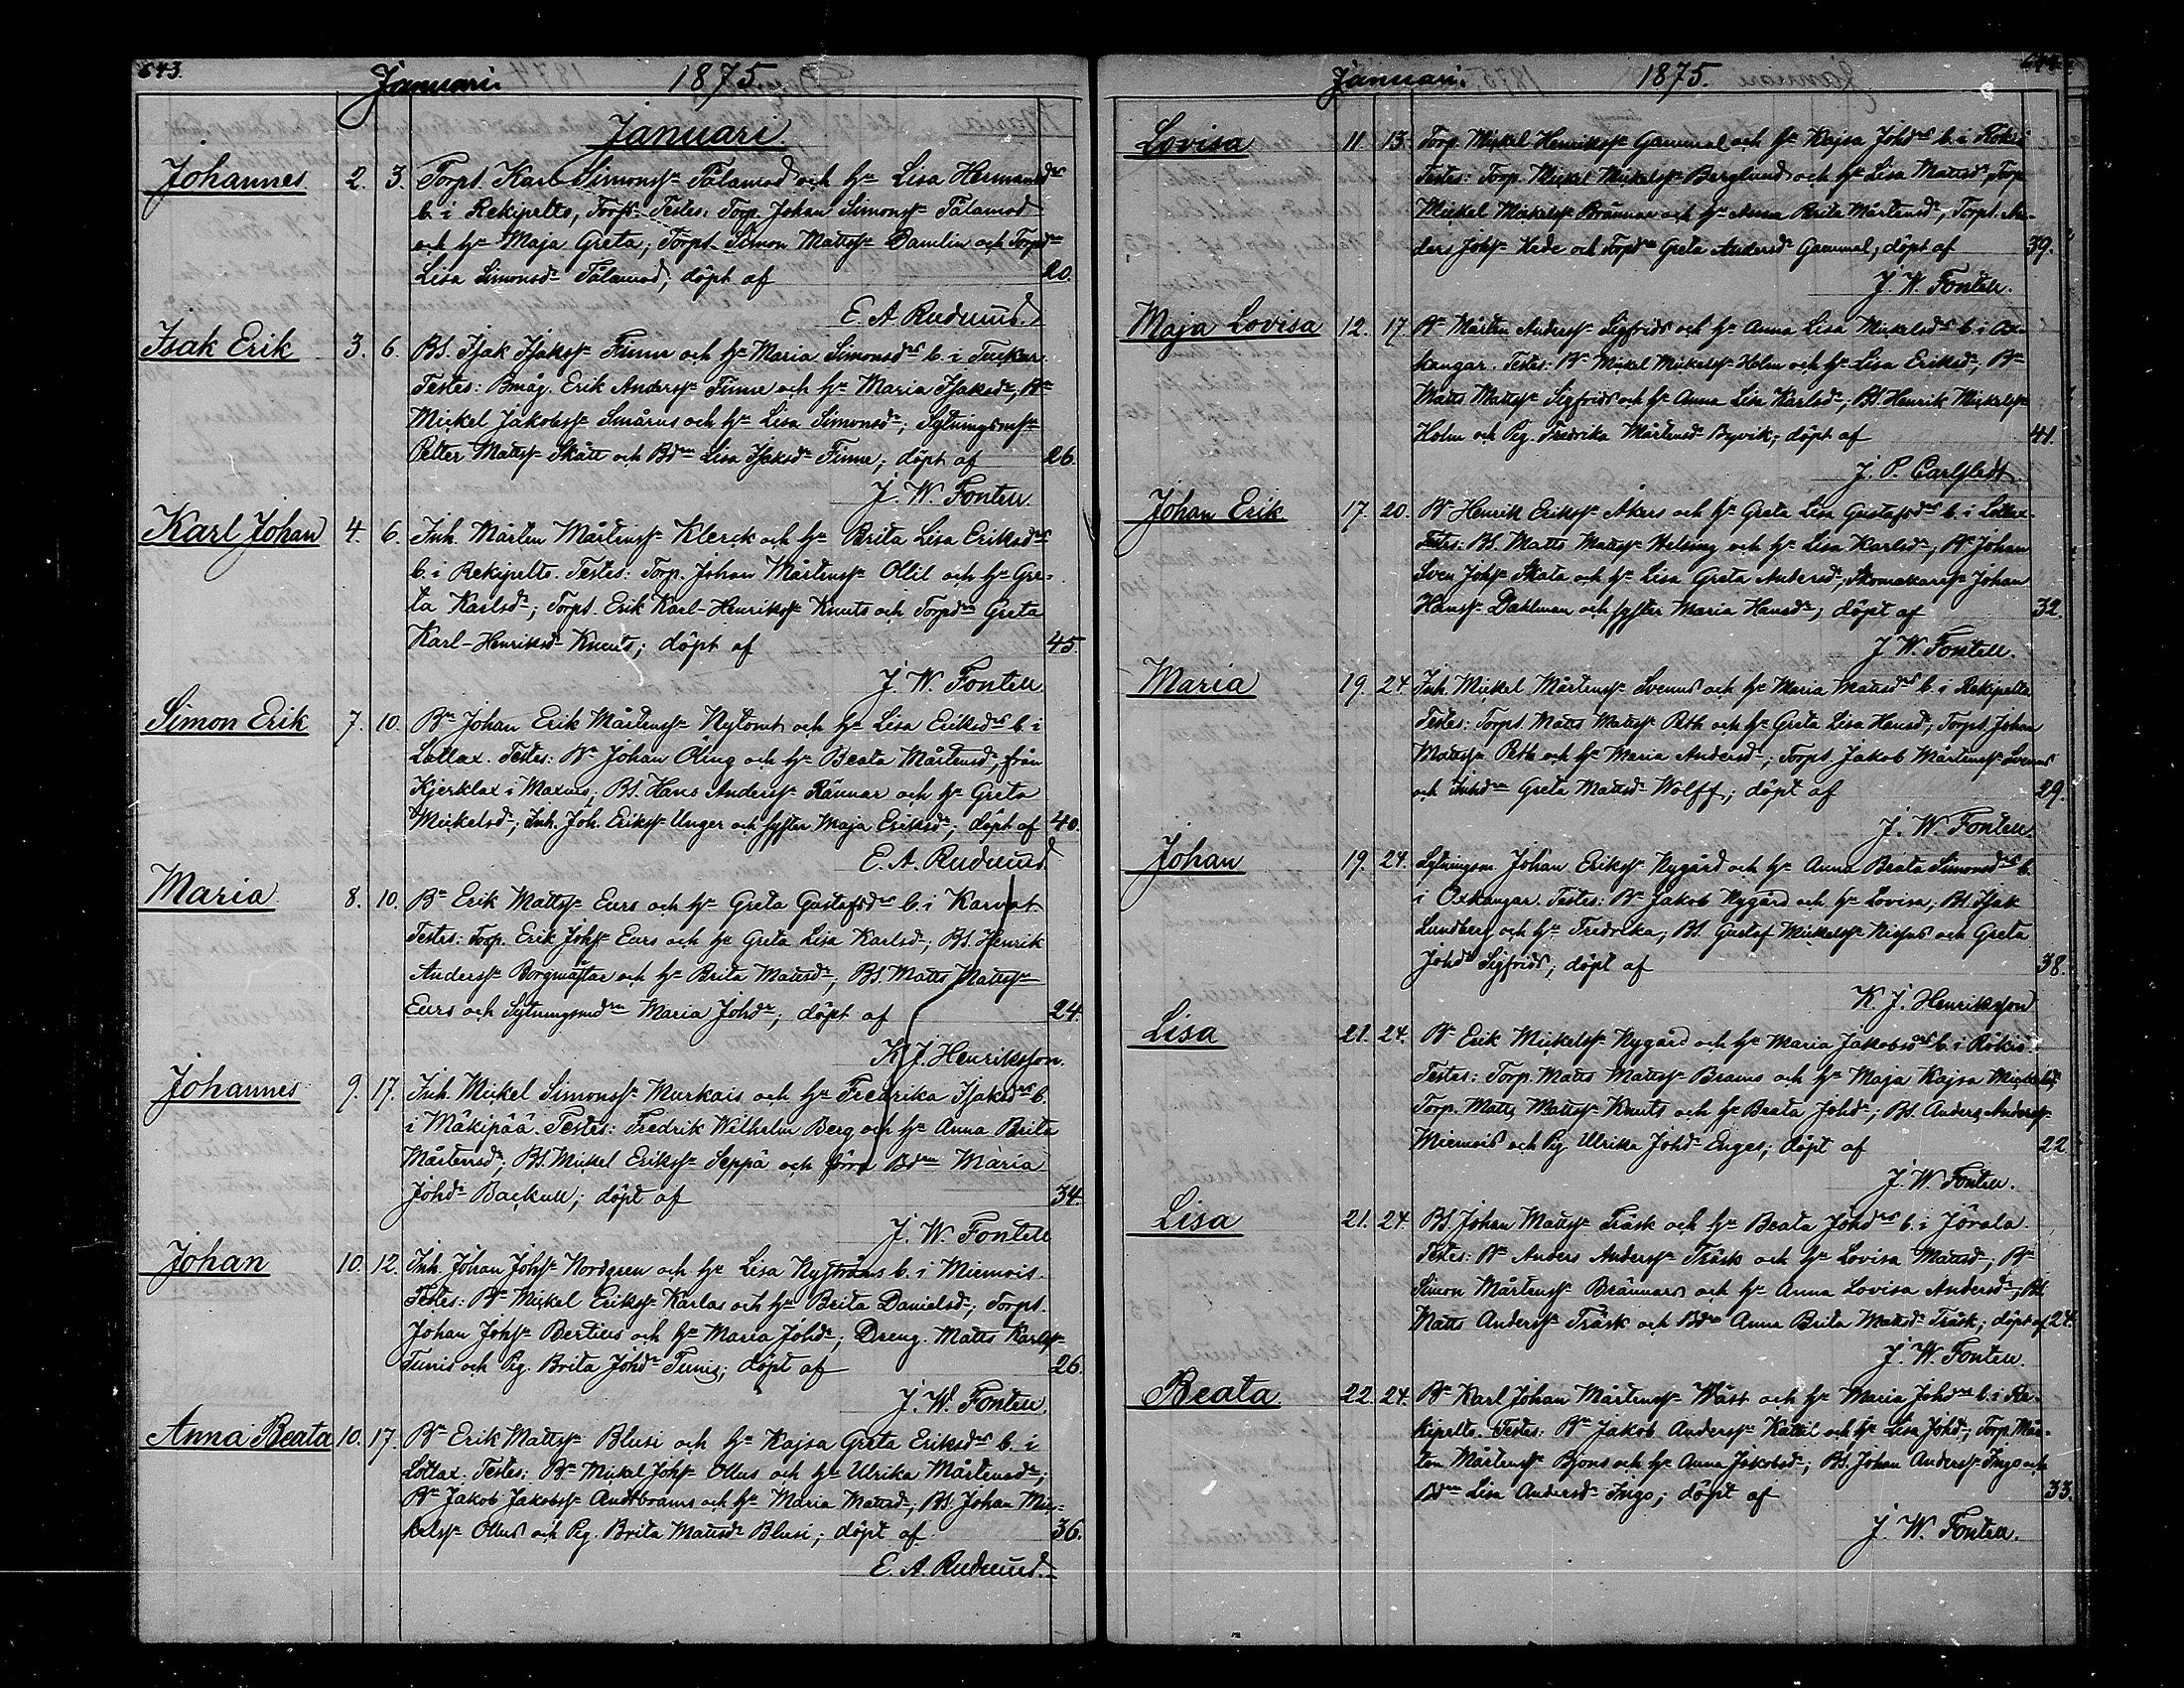 643.
Januari. 1875.
Januari.
Johannes 2. 3. Torps. Karl Simonss. Pålamod och h. Lisa Hermansdrs
b. i Rekipelto, Torps. Testes: Torp. Johan Simonss. Pålamod
och h. Maja Greta; Torps. Simon Mattss. Damlin och Torpdr
Lisa Simonsdr Pålamod; döpt af 20.
E. A. Rudnäs.
Isak Erik 3. 6. BS. Isak Isakss. Finne och h. Maria Simonsdrs b. i Tuckur.
Testes: Bmåg. Erik Anderss. Finne och h. Maria Isaksdr; Bn
Mickel Jakobss. Smårus och h. Lisa Simonsdr; Sytningsms.
Petter Mattss. Skått och Bdrn Lisa Isaksdr Finne; döpt af 26.
J. W. Fontell.
Karl Johan 4. 6. Inh. Mårten Mårtenss. Klerck och h. Brita Lisa Eriksdrs
b. i Rekipelto. Testes: Torp. Johan Mårtenss. Ollil och h. Gre-
ta Karlsdr; Torps. Erik Karl-Henrikss. Knuts och Torpdrn Greta
Karl-Henriksdr Knuts; döpt af 45.
J. W. Fontell.
Simon Erik 7. 10. Bn Johan Erik Mårtenss. Nytomt och h. Lisa Eriksdrs b. i
Lottax. Testes: Bn Johan Öling och h. Beata Mårtensdr, från
Kjerklax i Maxmo; BS. Hans Anderss. Rännar och h. Greta
Mickelsdr; Inh. Joh. Erikss. Unger och syster Maja Eriksdr; döpt af 40.
E. A. Rudnäs.
Maria 8. 10. Bn Erik Mattss. Eurs och h. Greta Gustafsdrs b. i Karvat.
Testes: Torp. Erik Johss. Eurs och h. Greta Lisa Karlsdr; BS. Henrik
Anderss. Borgmästar och h. Brita Mattsdr; BS. Matts Mattss.
Eurs och Sytningsmdrn Maria Johdr; döpt af 24.
K. J. Henriksson.
Johannes 9. 17. Inh. Mickel Simonss. Murkais och h. Fredrika Isaksdrs b.
i Mäkipää. Testes: Fredrik Wilhelm Berg och h. Anna Brita
Mårtensdr; BS. Mickel Erikss. Seppä och förra Bdrn Maria
Johdr Backull; döpt af 34.
J. W. Fontell
Johan 10. 12. Inh. Johan Johss. Nordgren och h. Lisa Nyströms b. i Miemois.
Testes: Bn Mickel Erikss. Karlas och h. Brita Danielsdr; Torps.
Johan Johss. Bertius och h. Maria Johdr; Dreng. Matts Karlss.
Tunis och Pig. Brita Johdr Tunis; döpt af 26.
J. W. Fontell.
Anna Beata 10. 17. Bn Erik Mattss. Blusi och h. Kajsa Greta Eriksdrs b. i
Lottax. Testes: Bn Mickel Johss. Ollus och h. Ulrika Mårtensdr;
Bn Jakob Jakobss. Andtbrams och h. Maria Mattsdr; BS. Johan Mic-
kelss. Ollus och Pig. Brita Mattsdr Blusi; döpt af 36.
E. A. Rudnäs.
644
Januari. 1875.
Lovisa 11. 13. Torp. Mickel Henrikss. Gammal och h. Kajsa Johdrs b. i Rökiö
Testes: Torp. Mickel Mickelss. Berglund och h. Lisa Mattsdr; Torp.
Mickel Mickelss. Brännar och h. Anna Brita Mårtensdr; Torps. An-
ders Johss. Hede och Torpdrn Greta Andersdr Gammal; döpt af 39.
J. W. Fontell.
Maja Lovisa 12. 17. Bn Mårten Anderss. Sigfrids och h. Anna Lisa Mickelsdrs b. i Ox-
kangar. Testes: Bn Mickel Mickelss. Holm och h. Lisa Eriksdr; Bn
Matts Mattss. Sigfrids och h. Anna Lisa Karlsdr; BS. Henrik Mickelss.
Holm och Pig. Fredrika Mårtensdr Byvik; döpt af 41.
J. P. Carlstedt.
Johan Erik 17. 20. Bn Henrik Erikss. Åkers och h. Greta Lisa Gustafsdrs b. i Lottax.
Testes: BS. Matts Mattss. Helsing och h. Lisa Karlsdr; Bn Johan
Sven Johss. Skata och h. Lisa Greta Andersdr; Skomakarss. Johan
Hanss. Dahlman och syster Maria Hansdr; döpt af 32.
J. W. Fontell.
Maria 19. 24. Inh. Mickel Mårtenss. Svenns och h. Maria Mattsdrs b. i Rekipelto
Testes: Torps. Matts Mattss. Peth och h. Greta Lisa Hansdr; Torps. Johan
Mattss. Peth och h. Maria Andersdr; Torps. Jakob Mårtenss. Svenns
och Inhdrn Greta Mattsdr Wolff; döpt af 29.
J. W. Fontell.
Johan 19. 24. Sytningsm. Johan Erikss. Nygård och h. Anna Beata Simonsdrs b.
i Oxkangar. Testes: Bn Jakob Nygård och h. Lovisa; BS. Isak
Lundberg och h. Fredrika; BS. Gustaf Mickelss. Nisus och Greta
Johdr Sigfrids; döpt af 38.
K. J. Henriksson
Lisa 21. 24. Bn Erik Mickelss. Nygård och h. Maria Jakobsdrs b. i Rökiö.
Testes: Torp. Matts Mattss. Brams och h. Maja Kajsa Mickelsdr
Torp. Matts Mattss. Knuts och h. Beata Johdr; BS. Anders Anderss.
Miemois och Pig Ulrika Johdr Enges; döpt af 22.
J. W. Fontell.
Lisa 21. 24. BS. Johan Mattss. Träsk och h. Beata Johdrs b. i Jörala.
Testes: Bn Anders Anderss. Träsk och h. Lovisa Mattsdr; Bn
Simon Mårtenss. Brännars och h. Anna Lovisa Andersdr; BS.
Matts Anderss. Träsk och Bdrn Anna Brita Mattsdr Träsk; döpt af 24.
J. W. Fontell.
Beata 22. 24. Bn Karl Johan Mårtenss. Wäst och h. Maria Johdrs b. i Re-
kipelto. Testes: Bn Jakob Anderss. Kattil och h. Lisa Johdr; Torp. Mår-
ten Mårtenss. Bjons och h. Anna Jakobsdr; BS. Johan Anderss. Ingo och
Bdrn Lisa Andersdr Ingo; döpt af 33.
J. W. Fontell.